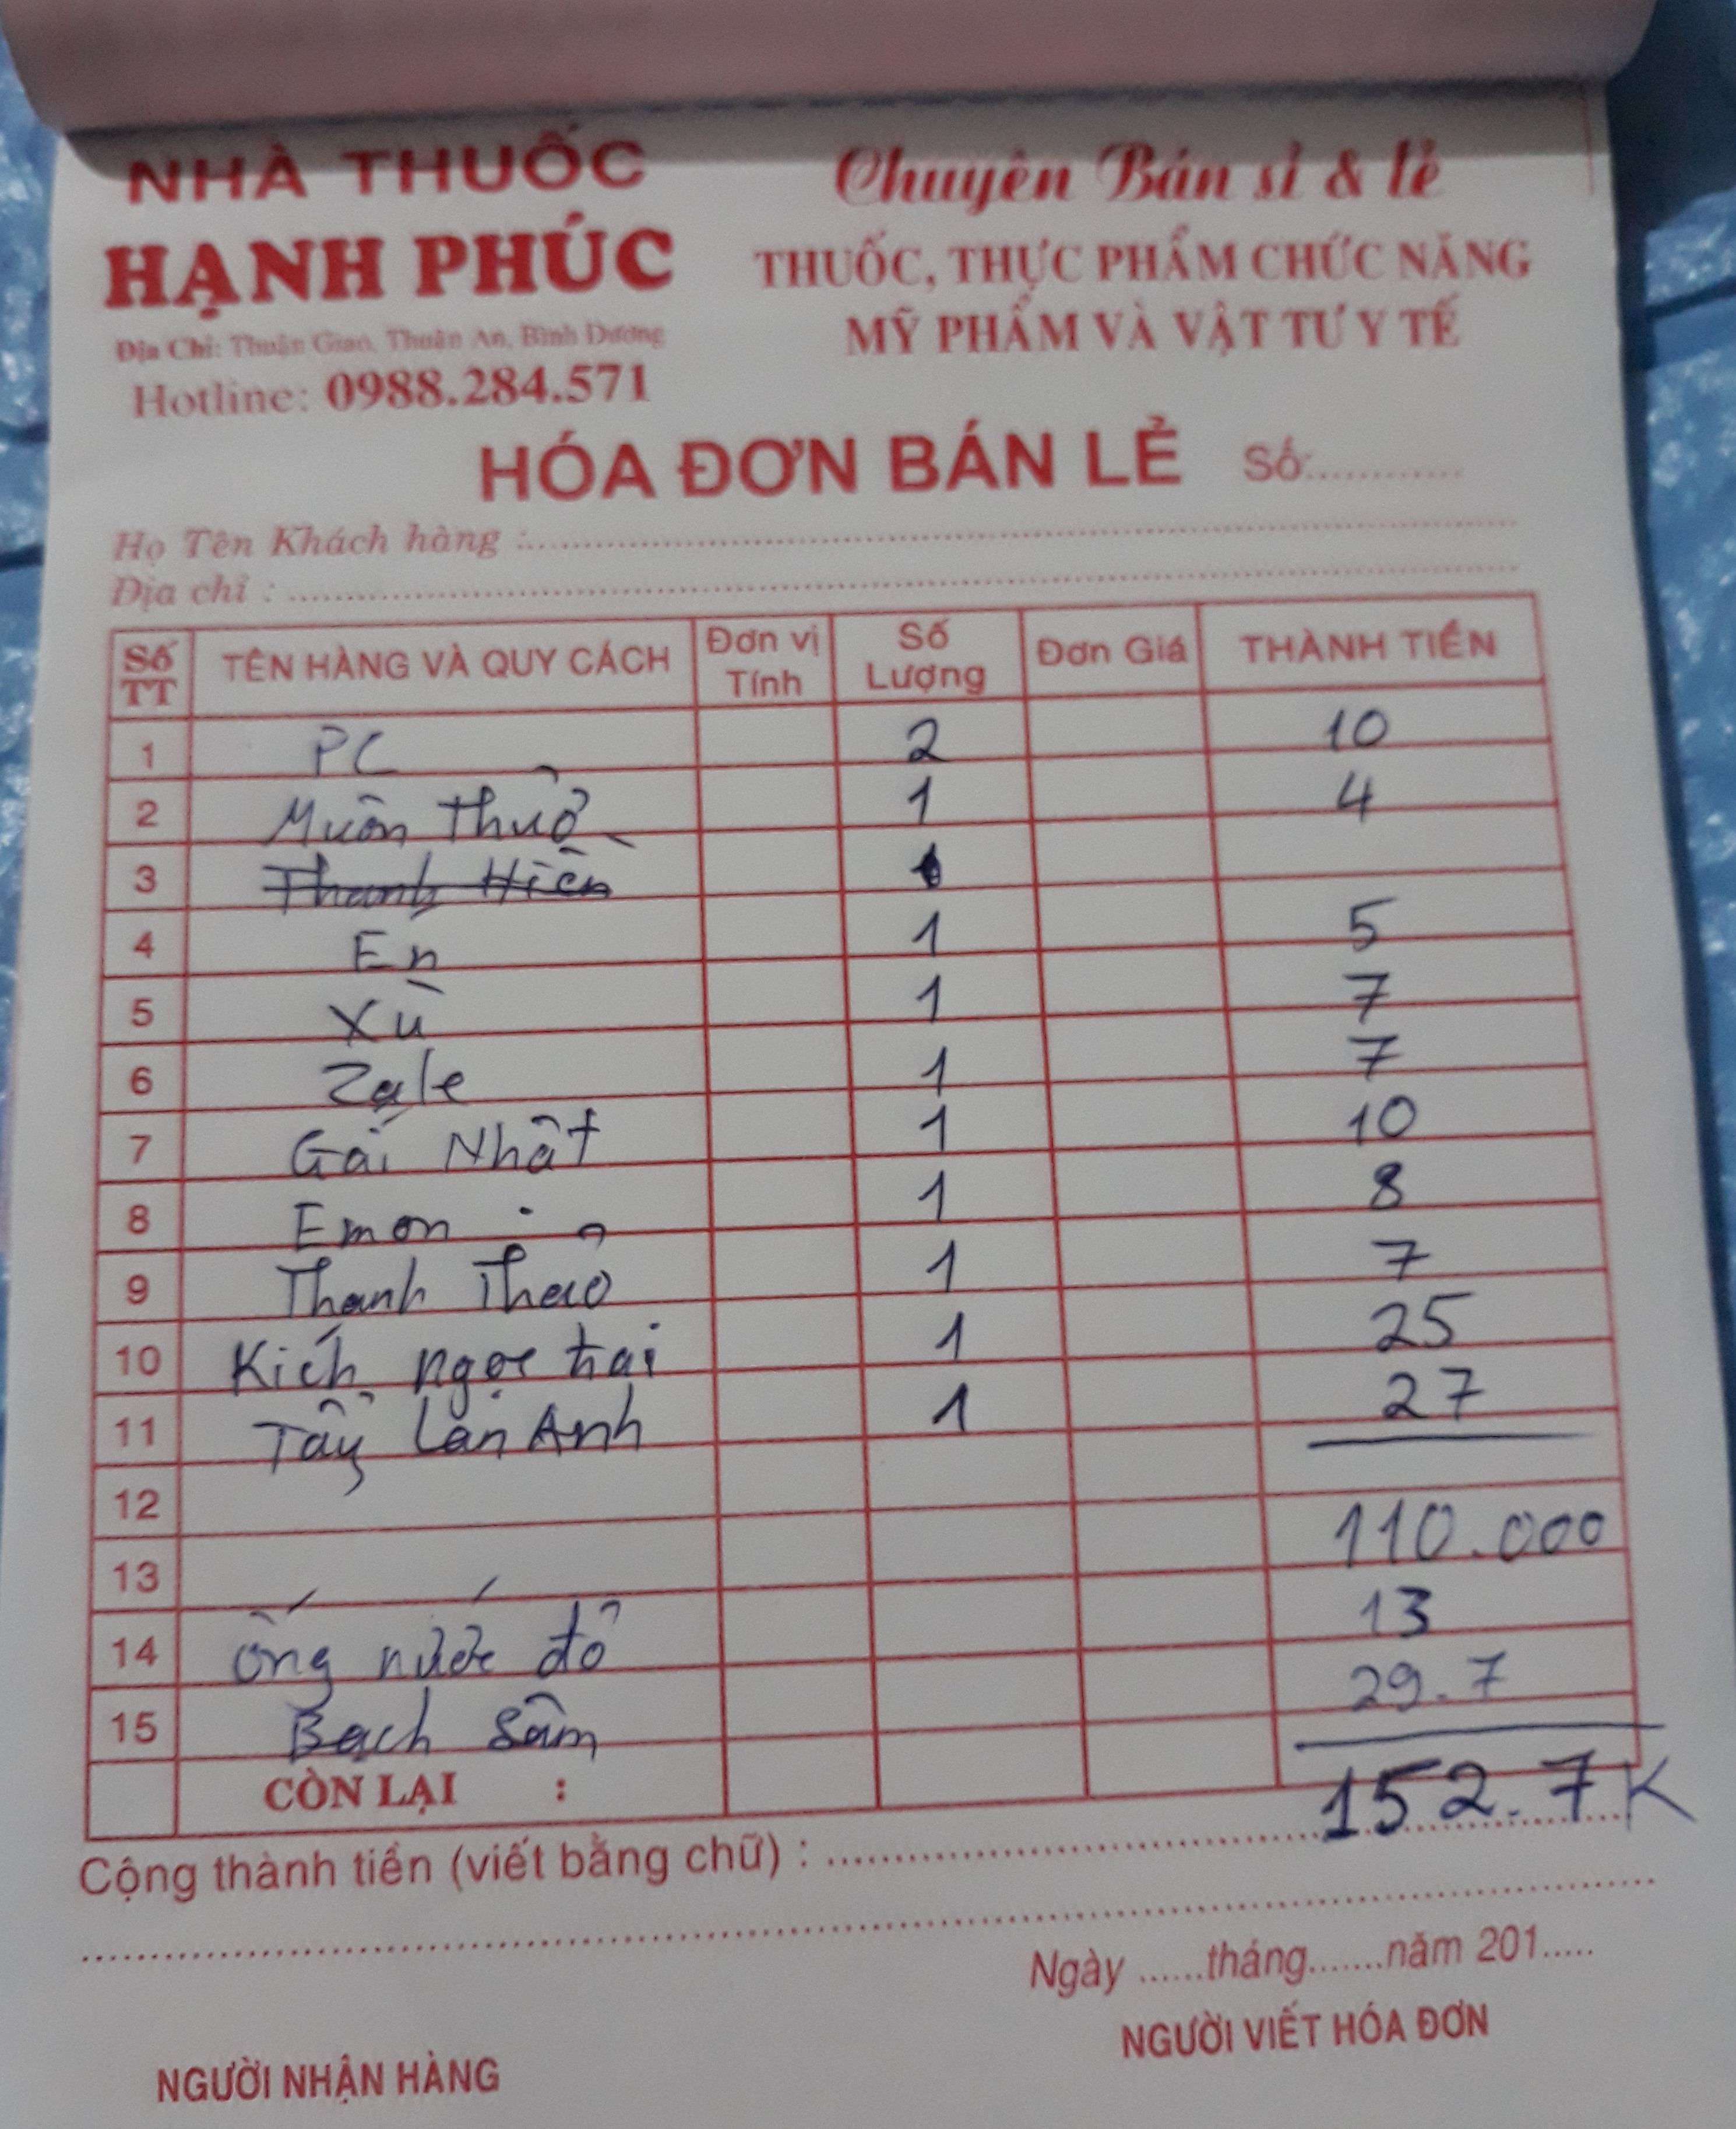 NHÀ THUỐC
HẠNH PHÚC
Địa Chỉ: Thuận Giao, Thuận An, Bình Dương
Hotline: 0988.284.571
Chuyên Bán sỉ & lẻ
THUỐC, THỰC PHẨM CHỨC NĂNG
MỸ PHẨM VÀ VẬT TƯ Y TẾ
HÓA ĐƠN BÁN LẺ Số:............
Họ Tên Khách hàng :..............
Địa chỉ : ..............
Số TT TÊN HÀNG VÀ QUY CÁCH Đơn vị Tính Số Lượng Đơn Giá THÀNH TIỀN
1 PC 2 10
2 Muôn Thuở 1 4
3 Thanh Hiền
4 En 1 5
5 Xù 1 7
6 Zale 1 7
7 Gái Nhật 1 10
8 Emon 1 8
9 Thanh Thảo 1 7
10 Kích ngọc trai 1 25
11 Tẩy Lan Anh 1 27
12
110.000
13
14 Ống nước đỏ 13
15 Bạch Sâm 29.7
CÒN LẠI :
152.7K
Cộng thành tiền (viết bằng chữ) : ..............
Ngày ......tháng.......năm 201.....
NGƯỜI VIẾT HÓA ĐƠN
NGƯỜI NHẬN HÀNG